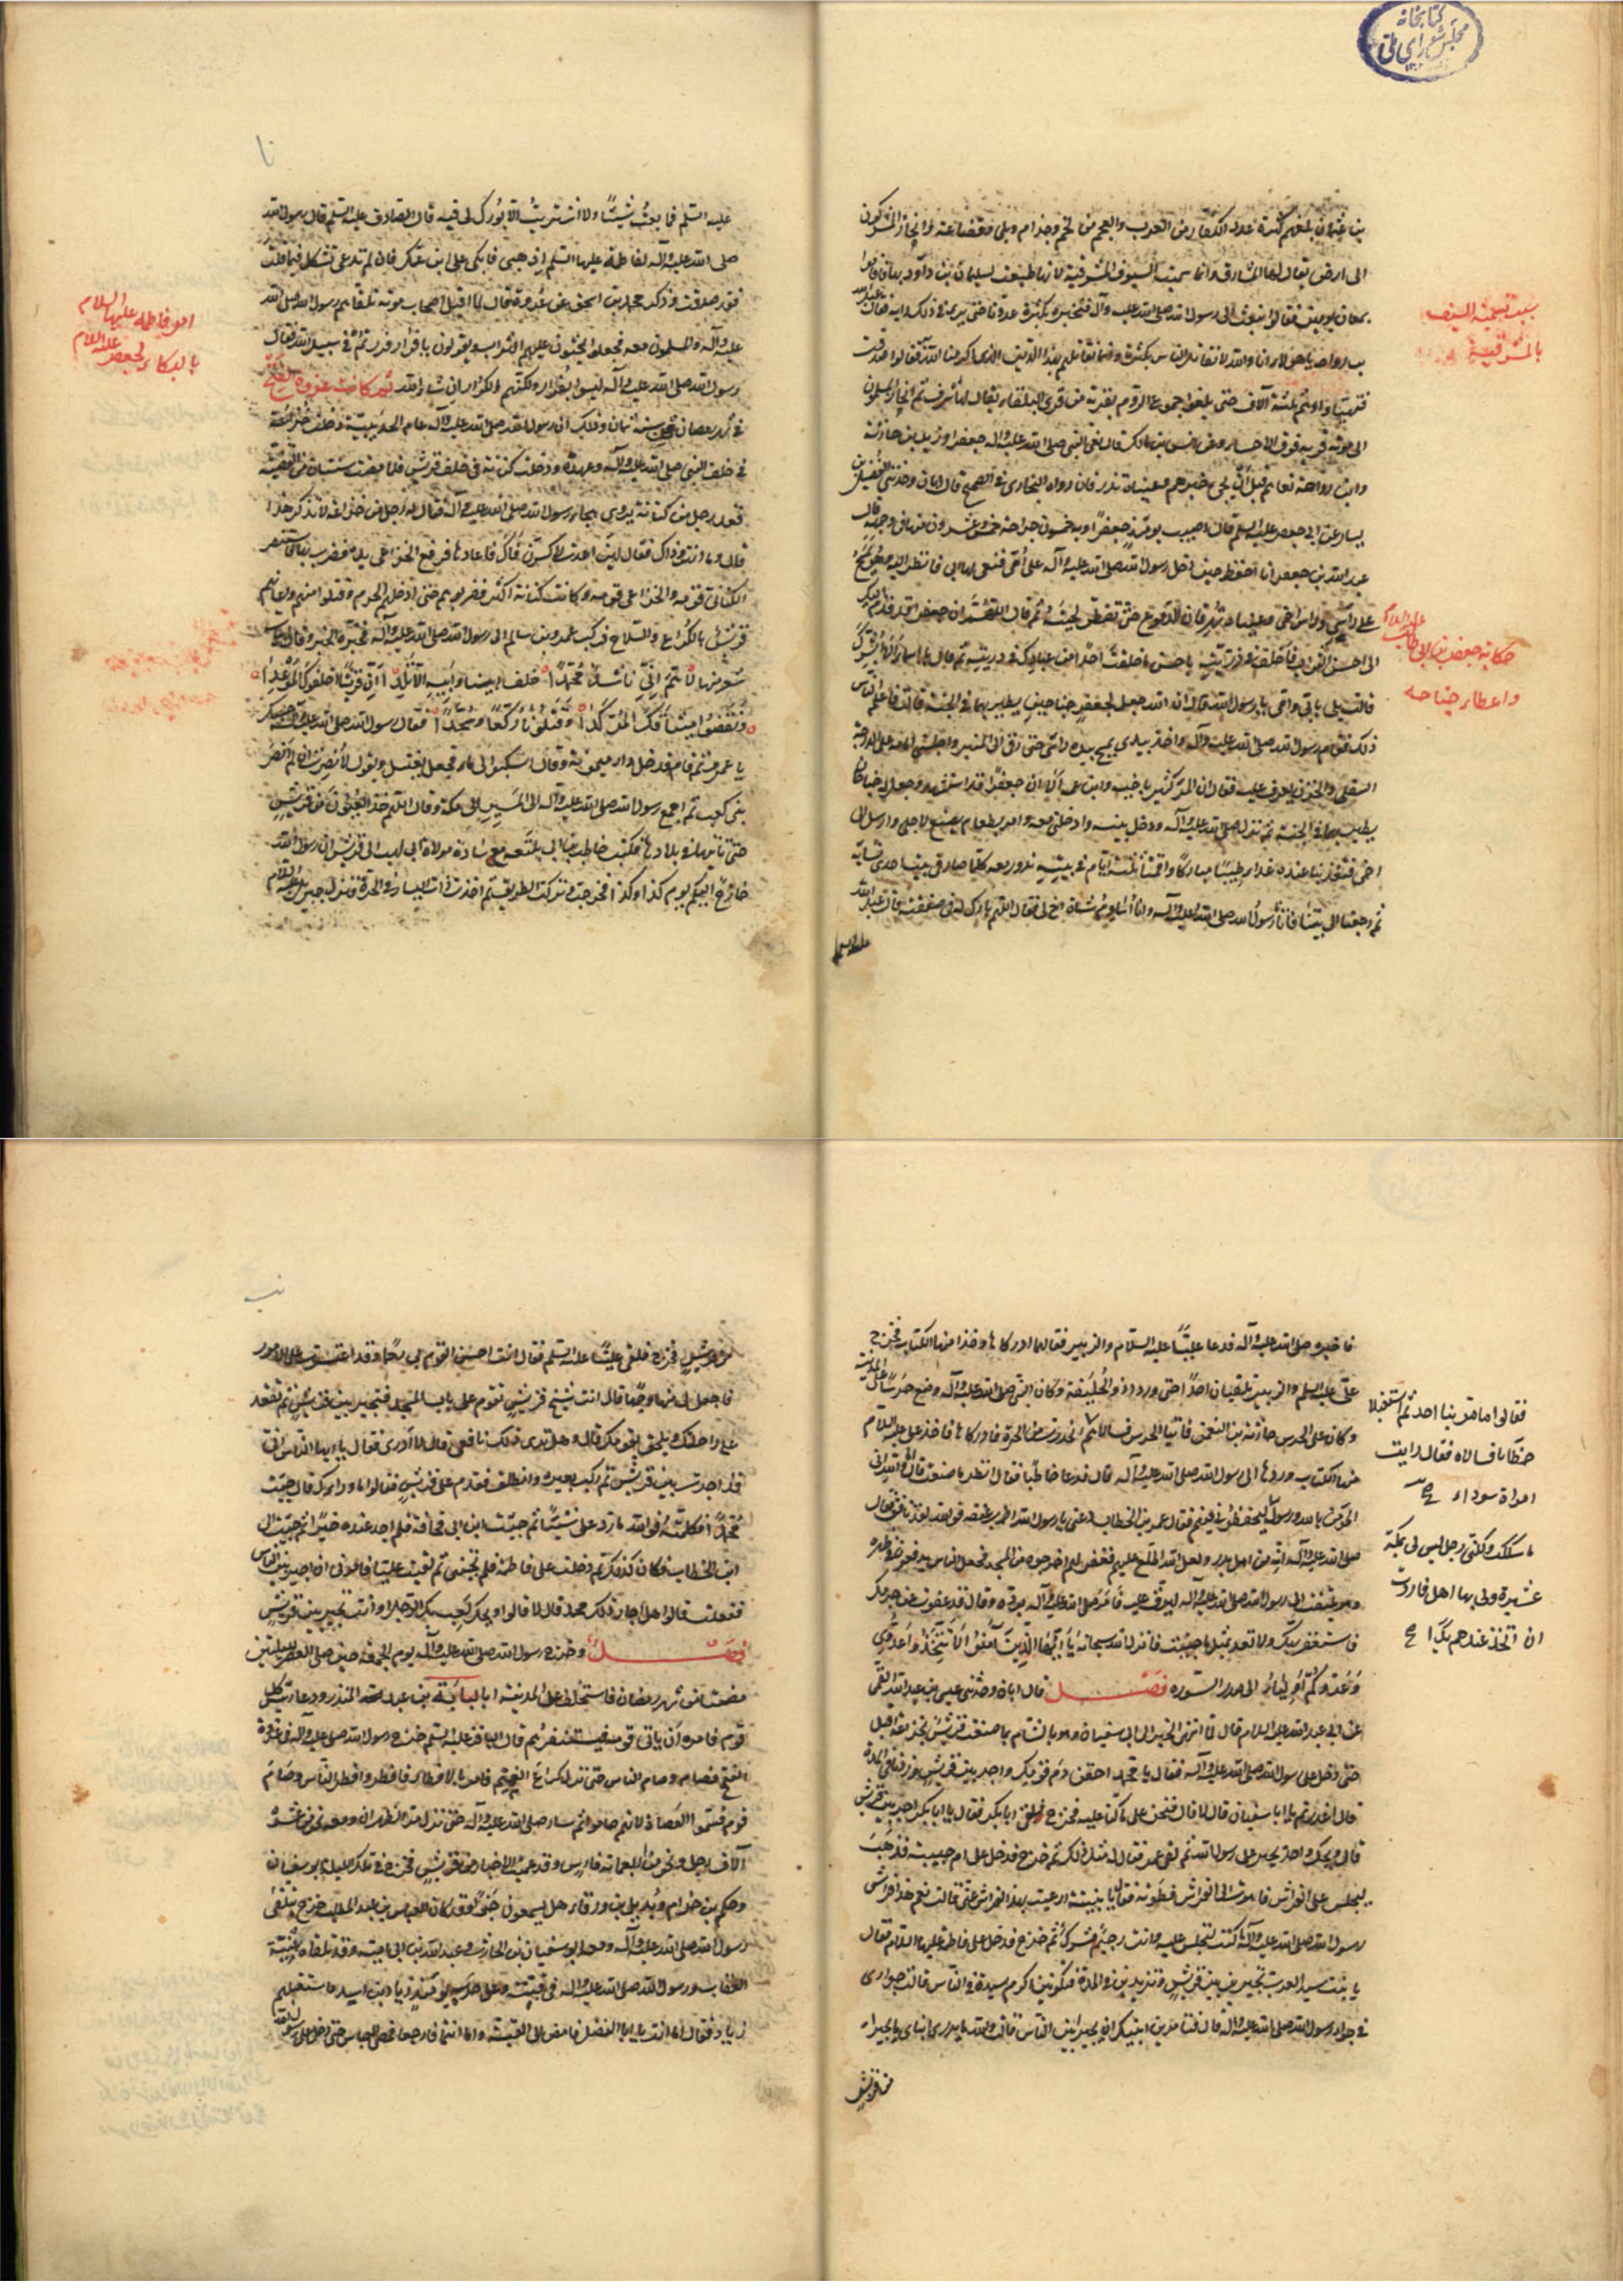 كتابخانه
مجلس شورای ملی
بني عثمان بلغهم كثرة عدد الكفار من العرب والعجم من لخم وجذام وبلي وقضاعة وانحاز المشركون
الى ارض يقال لها المشارف وانما سميت السيوف المشرفية لانها طبعت لسليمان بن داود بها فاقاموا
بمعان يومين فقالوا نبعث الى رسول الله صلى الله عليه وآله فنخبره بكثرة عدونا حتى يرى في ذلك رايه فقال عبد الله
بن رواحة يا هؤلاء انا والله لا نقاتل الناس بكثرة وانما نقاتلهم بهذا الدين الذي اكرمنا الله به فقالوا صدقت
فتهيئوا وهم ثلثة آلاف حتى بلغوا جموع الروم بقرية من قرى البلقاء يقال لها شرف ثم انحاز المسلمون
الى موتة قرية فوق الاحساء وعن انس بن مالك قال نعى النبي صلى الله عليه وآله جعفرا وزيد بن حارثة
وابن رواحة نعاهم قبل ان يجيء خبرهم وعيناه تذرفان رواه البخاري في الصحيح قال ابان وحدثني الفضيل بن
يسار عن ابي جعفر عليه السلم قال اصيب يومئذ جعفر وبه خمسون جراحة خمس وعشرون منها في وجهه قال
عبد الله بن جعفر انا احفظ حين دخل رسول الله صلى الله عليه وآله على امي فنعى لها ابي فانظر اليه وهو يمسح
على راسي وراس اخي وعيناه تهرقان الدموع حتى تقطر لحيته ثم قال اللهم ان جعفرا قد قدم اليك
الى احسن الثواب فاخلفه في ذريته باحسن ما خلفت احدا من عبادك في ذريته ثم قال يا اسماء الا ابشرك
قالت بلى بابي وامي يا رسول الله قال ان الله جعل لجعفر جناحين يطير بهما في الجنة قالت فاعلم الناس
ذلك فقام رسول الله صلى الله عليه وآله واخذ بيدي يمسح بيده راسي حتى رقى الى المنبر واجلسني امامه على الدرجة
السفلى والحزن يعرف عليه فقال ان المرء كثير باخيه وابن عمه الا ان جعفرا قد استشهد وجعل له جناحان
يطير بهما في الجنة ثم نزل صلى الله عليه وآله ودخل بيته وادخلني معه وامر بطعام يصنع لاجلي وارسل الى
اخي فتغدينا عنده غداء طيبا مباركا واقمنا ثلثة ايام في بيته ندور معه كلما صار في بيت احدى نسائه
ثم رجعنا الى بيتنا فاتانا رسول الله صلى الله عليه وآله وانا اساوم شاة اخ لي فقال اللهم بارك له في صفقته قال عبد الله
سبب تسمية السيف
بالمشرفية
حكاية جعفر بن ابي طالب عليه السلام
واعطاء جناحه
عليه السلم فما بعت شيئا ولا اشتريت الا بورك لي فيه قال الصادق عليه السلم قال رسول الله
صلى الله عليه وآله لفاطمة عليها السلم اذهبي فابكي على ابن عمك فان لم تدعي بثكل فما قلت
فقد صدقت وذكر محمد بن اسحق عن عروة قال لما اقبل اصحاب موتة تلقاهم رسول الله صلى الله
عليه وآله والمسلمون معه فجعلوا يحثون عليهم التراب ويقولون يا فرار فررتم في سبيل الله فقال
رسول الله صلى الله عليه وآله ليسوا بفرار ولكنهم الكرار ان شاء الله ثم كانت غزوة الفتح
في شهر رمضان من سنة ثمان وذلك ان رسول الله صلى الله عليه وآله عام الحديبية دخلت خزاعة
في حلف النبي صلى الله عليه وآله وعهده ودخلت كنانة في حلف قريش فلما مضت سنتان من القضية
قعد رجل من كنانة يروي هجاء رسول الله صلى الله عليه وآله فقال له رجل من خزاعة لا تذكر هذا
قال وما انت وذاك فقال لئن اعدت لاكسرن فاك فاعادها فرفع الخزاعي يده فضرب بها فاه فاستنصر
الكناني قومه والخزاعي قومه وكانت كنانة اكثر فضربوهم حتى ادخلوهم الحرم وقتلوا منهم واعانهم
قريش بالكراع والسلاح فركب عمرو بن سالم الى رسول الله صلى الله عليه وآله فخبره الخبر وقال ابيات
شعر منها لا هم اني ناشد محمدا حلف ابينا وابيه الاتلدا ان قريشا اخلفوك الموعدا
ونقضوا ميثاقك المؤكدا وقتلونا ركعا وسجدا فقال رسول الله صلى الله عليه وآله حسبك
يا عمرو ثم قام فدخل دار ميمونة وقال اسكبوا لي ماء فجعل يغتسل ويقول لا نصرت ان لم انصر
بني كعب ثم اجمع رسول الله صلى الله عليه وآله الى المسير الى مكة وقال اللهم خذ العيون من قريش
حتى ناتيها في بلادها فكتب حاطب بن ابي بلتعه مع سارة مولاة ابي لهب الى قريش ان رسول الله
خارج اليكم يوم كذا وكذا فخرجت وتركت الطريق ثم اخذت ذات اليسار في الحرة فنزل جبرئيل عليه السلام
امر فاطمه عليها السلام
بالبكاء لجعفر عليه السلام
فاخبره صلى الله عليه وآله فدعا عليا عليه السلام والزبير فقال لهما ادركاها وخذا منها الكتاب فخرج
علي عليه السلم والزبير لا يلقيان احدا حتى وردا ذو الحليفة وكان النبي صلى الله عليه وآله وضع حرسا على المدينة
وكان على الحرس حارثة بن النعمن فاتيا الحرس فسالاهم ثم انحدرت في الحرة فادركاها فاخذ علي عليه السلام
منها الكتاب وردها الى رسول الله صلى الله عليه وآله قال فدعا حاطبا فقال انظر ما صنعت قال اما والله اني
لمؤمن بالله ورسوله ليحفظوني فيهم فقال عمر بن الخطاب دعني يا رسول الله اضرب عنقه فوالله لقد نافق فقال
صلى الله عليه وآله انه من اهل بدر ولعل الله اطلع عليهم فغفر لهم اخرجوه من المسجد فجعل الناس يدفعون في ظهره
وهو يلتفت الى رسول الله صلى الله عليه وآله ليرق عليه فامر صلى الله عليه وآله برده وقال قد عفوت عن جرمك
فاستغفر ربك ولا تعد لمثل ما جنيت فانزل الله سبحانه يا ايها الذين آمنوا لا تتخذوا عدوي
وعدوكم اولياء الى صدر السورة فصل قال ابان وحدثني عيسى بن عبد الله القمي
عن ابي عبد الله عليه السلام قال لما انتهى الخبر الى ابي سفيان وهو بالشام بما صنعت قريش بخزاعة اقبل
حتى دخل على رسول الله صلى الله عليه وآله فقال يا محمد احقن دم قومك واجر بين قريش وزدنا في المدة
قال اغدرتم يا ابا سفيان قال لا قال فنحن على ما كنا عليه فخرج فلقي ابا بكر فقال يا ابا بكر اجر بين قريش
قال ويحك واحد يجير على رسول الله ثم لقي عمر فقال له مثل ذلك ثم خرج فدخل على ام حبيبة فذهب
ليجلس على الفراش فاهوت الى الفراش فطوته فقال يا بنية ارغبت بهذا الفراش عني قالت نعم هذا فراش
رسول الله صلى الله عليه وآله ما كنت لتجلس عليه وانت رجس مشرك ثم خرج فدخل على فاطمة عليها السلام فقال
يا بنت سيد العرب تجيرين بين قريش وتزيدين في المدة فتكونين اكرم سيدة في الناس قالت جواري
في جوار رسول الله صلى الله عليه وآله قال فتامرين ابنيك ان يجيرا بين الناس قالت والله ما يدري ابناي ما يجيران
من قريش
فقالوا ما مر بنا احد ثم استقبلا
حطابا فسالاه فقال رايت
امراة سوداء
ما شككت ولكني رجل ليس لي بمكة
عشيرة ولي بها اهل فاردت
ان اتخذ عندهم يدا
من قريش فخرج فلقي عليا عليه السلم فقال انت احسن القوم بي رحما وقد اعتسرت علي الامور
فاجعل لي منها وجها قال انت شيخ قريش تقوم على باب المسجد فتجير بين قريش ثم تقعد
على راحلتك وتلحق بقومك قال وهل ترى ذلك نافعي قال لا ادري فقال يا ايها الناس اني
قد اجرت بين قريش ثم ركب بعيره وانطلق فقدم على قريش فقالوا ما وراءك قال جئت
محمدا فكلمته فوالله ما رد علي شيئا ثم جئت ابن ابي قحافة فلم اجد عنده خيرا ثم جئت الى
ابن الخطاب فكان كذلك ثم دخلت على فاطمة فلم تجبني ثم لقيت عليا فامرني ان اجير بين الناس
ففعلت قالوا هل اجاز ذلك محمد قال لا قالوا ويحك لعب بك الرجل او انت تجير بين قريش
فصل وخرج رسول الله صلى الله عليه وآله يوم الجمعة حين صلى العصر لليلتين
مضتا من شهر رمضان فاستخلف على المدينة ابا لبابة بن عبد المنذر ودعا رئيس كل
قوم فامره ان ياتي قومه فيستنفرهم قال الباقر عليه السلم خرج رسول الله صلى الله عليه وآله في غزوة
الفتح فصام وصام الناس حتى نزل كراع الغميم فامر بالافطار فافطر وافطر الناس وصام
قوم فسموا العصاة لانهم صاموا ثم سار صلى الله عليه وآله حتى نزل مر الظهران ومعه نحو من عشرة
آلاف رجل ونحو من اربعمائة فارس وقد عميت الاخبار عن قريش فخرج في تلك الليلة ابو سفيان
وحكيم بن حزام وبديل بن ورقاء هل يسمعون خبرا وقد كان العباس بن عبد المطلب خرج يتلقى
رسول الله صلى الله عليه وآله ومعه ابو سفيان بن الحارث وعبد الله بن ابي امية وقد تلقاه بثنية
العقاب ورسول الله صلى الله عليه وآله في قبته وعلى حرسه يومئذ زياد بن اسيد فاستقبلهم
زياد فقال اما انت يا ابا الفضل فامض الى القبة واما انتما فارجعا فمضى العباس حتى دخل على رسول الله